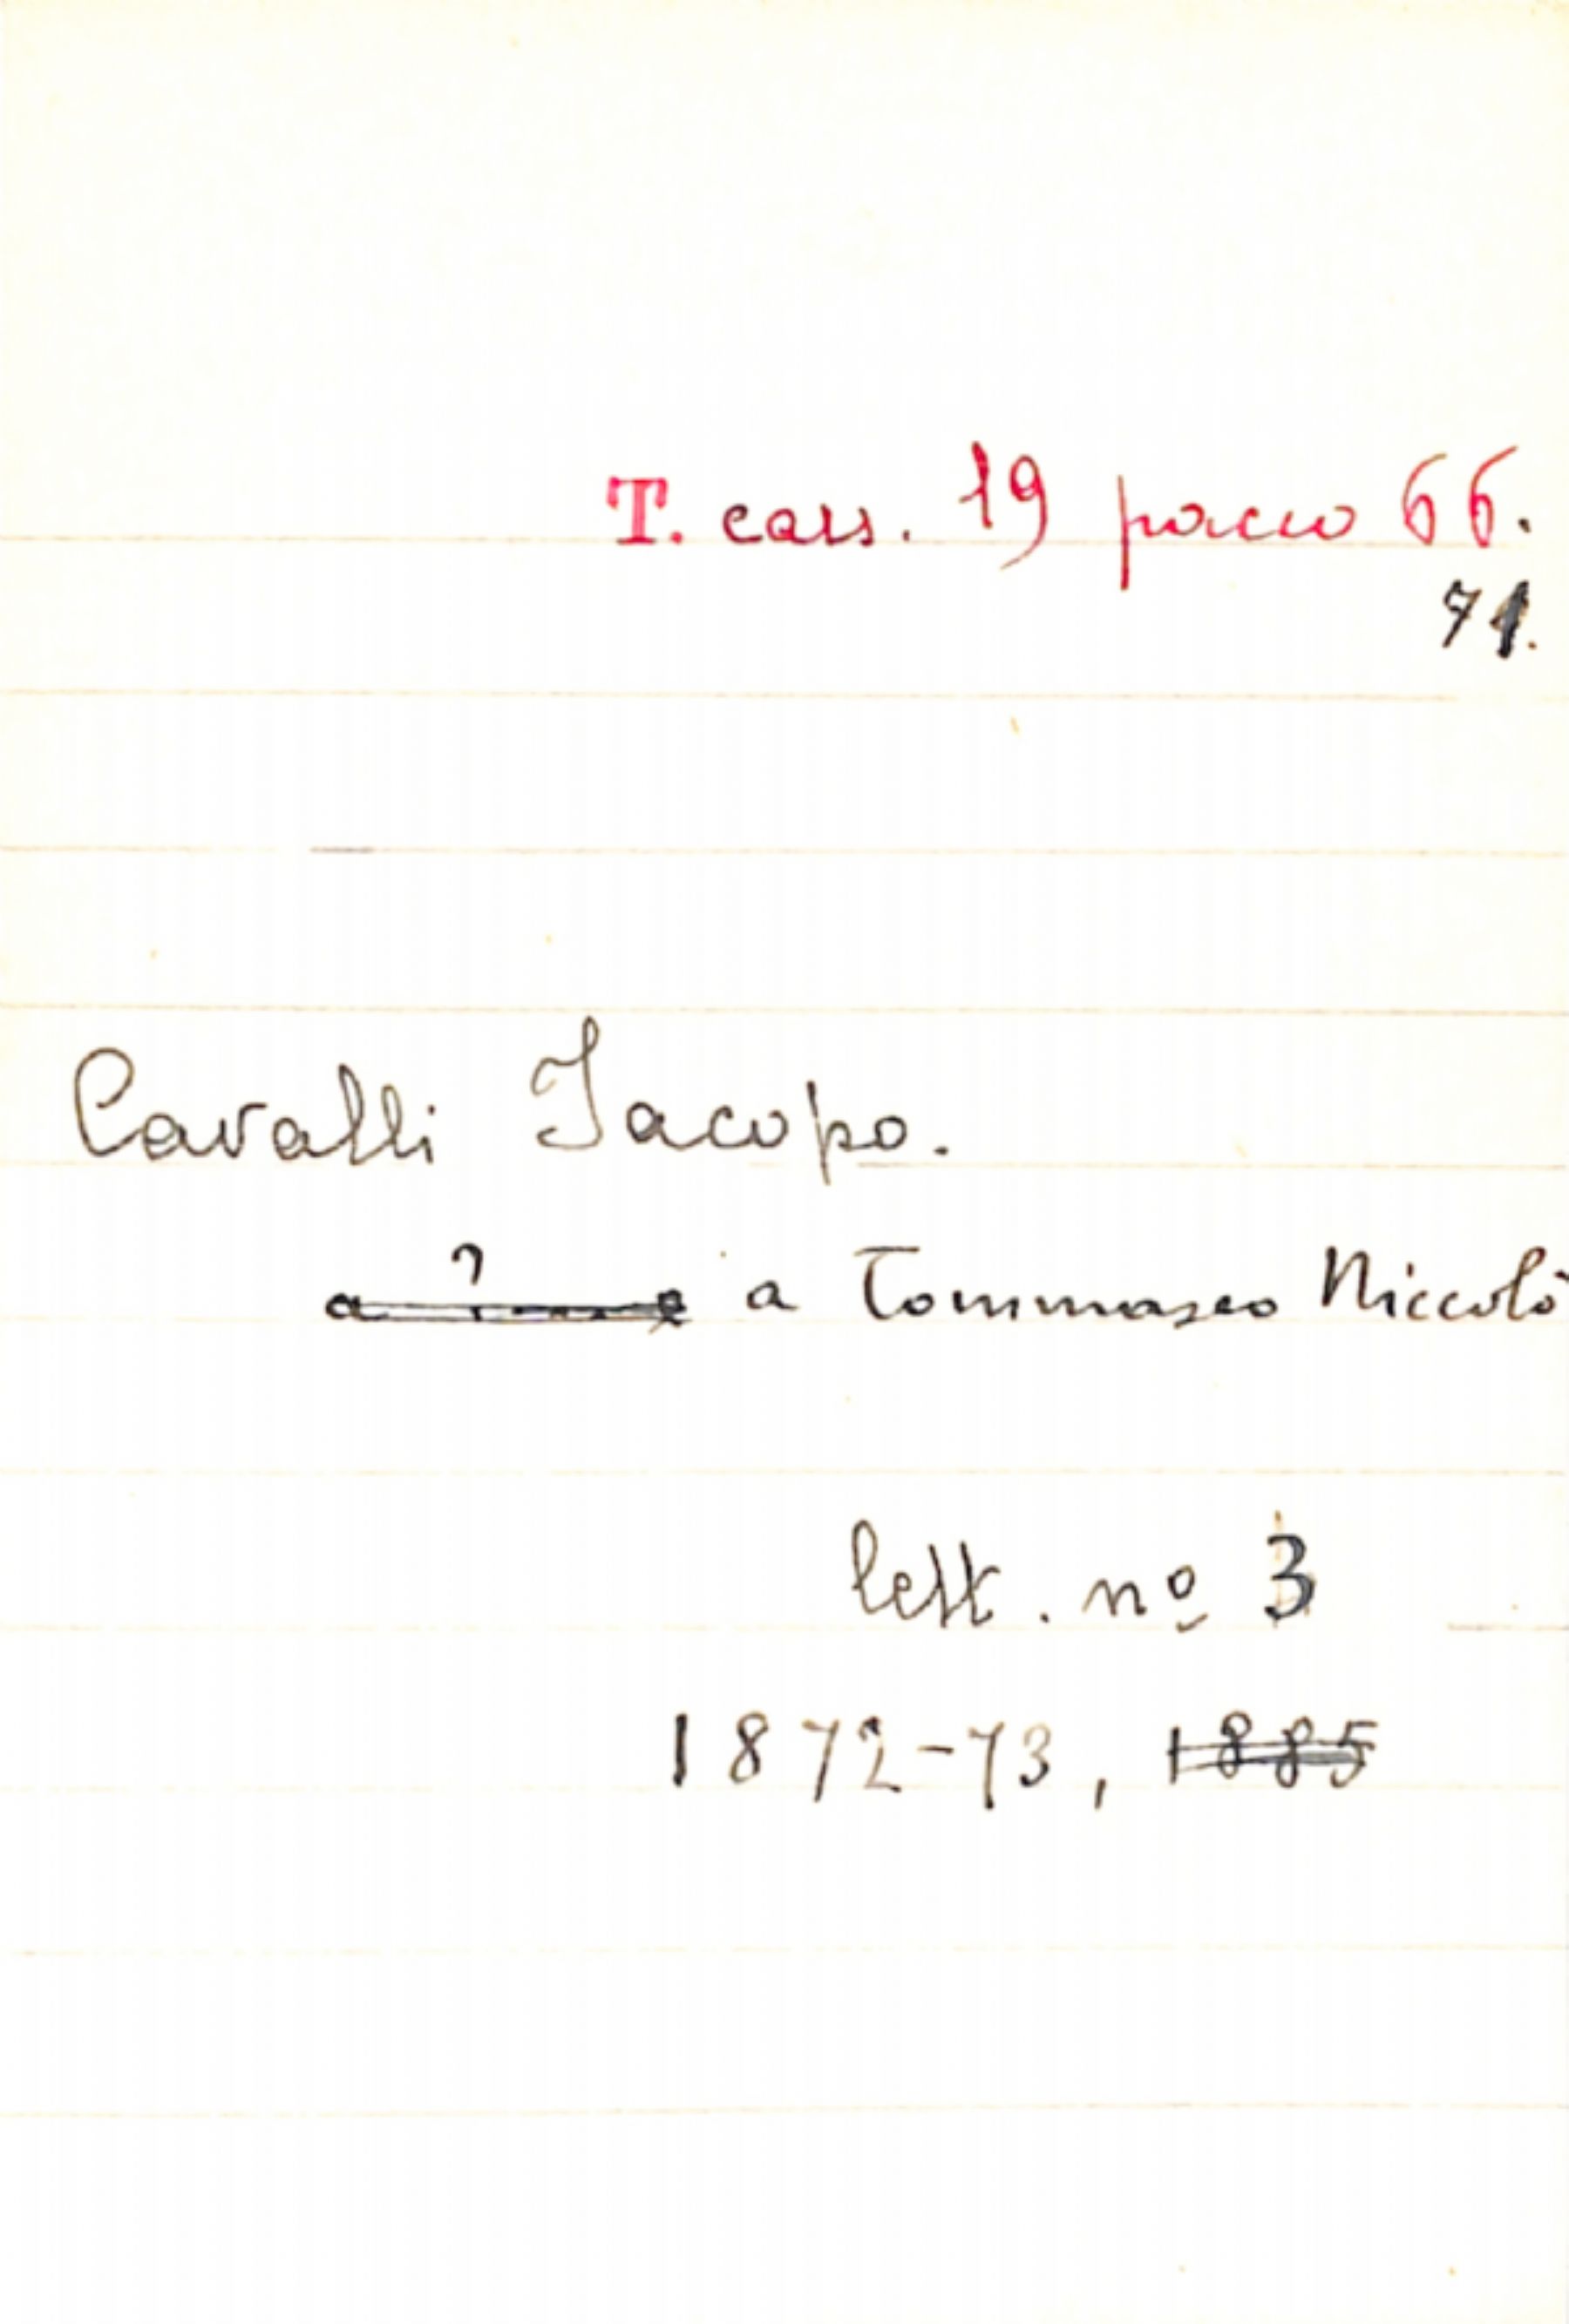 T. cass. 19 pacco 66.
71.
Cavalli Jacopo.
a ? a Tommaseo Niccolò
lett. nº 3
1872-73, 1885